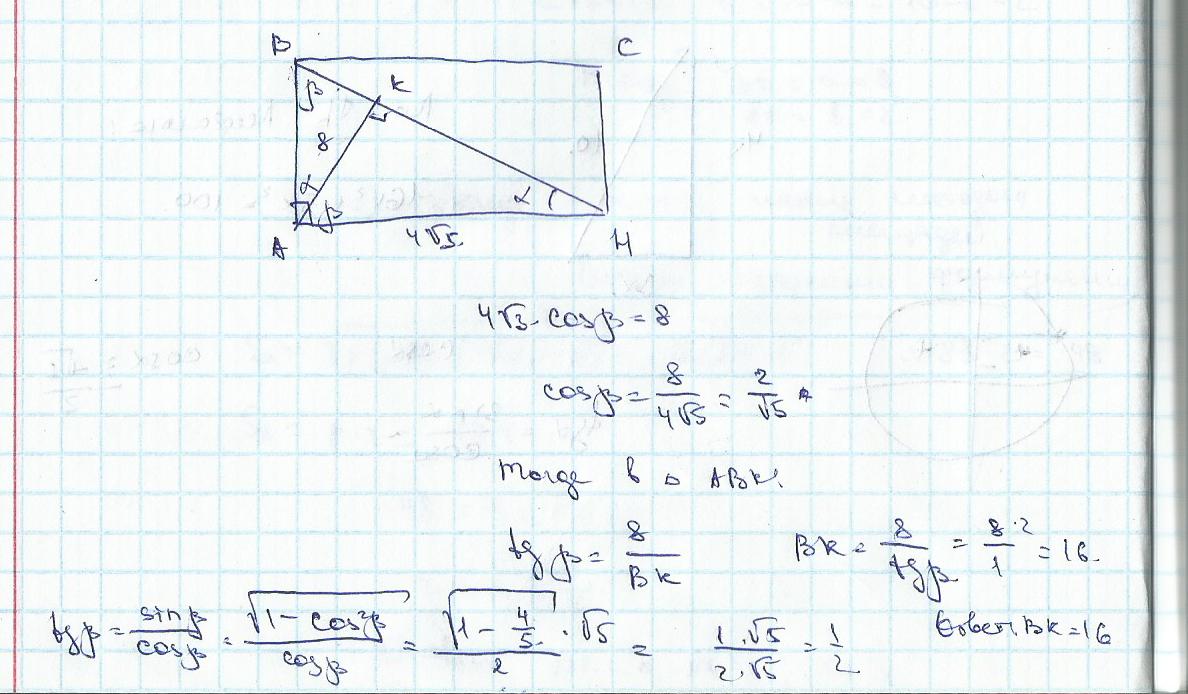 B C
β K
8
α α
A β H
4√5
4√5 · cosβ = 8
cosβ = 8/4√5 = 2/√5
Тогда в △ ABK:
tgβ = 8/BK BK = 8/tgβ = 8·2/1 = 16.
tgβ = sinβ/cosβ = √(1 - cos²β)/cosβ = √(1 - 4/5) · √5/2 = 1·√5/2·√5 = 1/2
Ответ: BK = 16